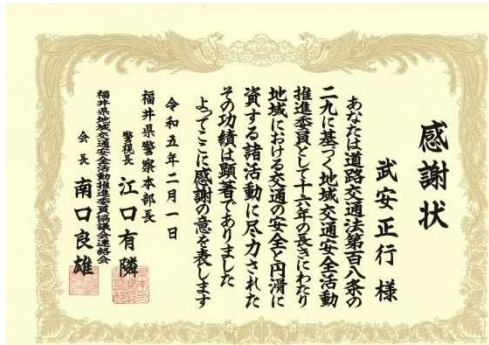 感謝状
武安正行 様
あなたは道路交通法第百八条の
二九に基づく地域交通安全活動
推進委員として十六年の長きにわたり
地域における交通の安全と円滑に
資する諸活動に尽力された
その功績は顕著でありました
よってここに感謝の意を表します
令和五年二月一日
福井県警察本部長
警視長 江口有隣
福井県地域交通安全活動推進委員協議会連絡会
会長 南口良雄